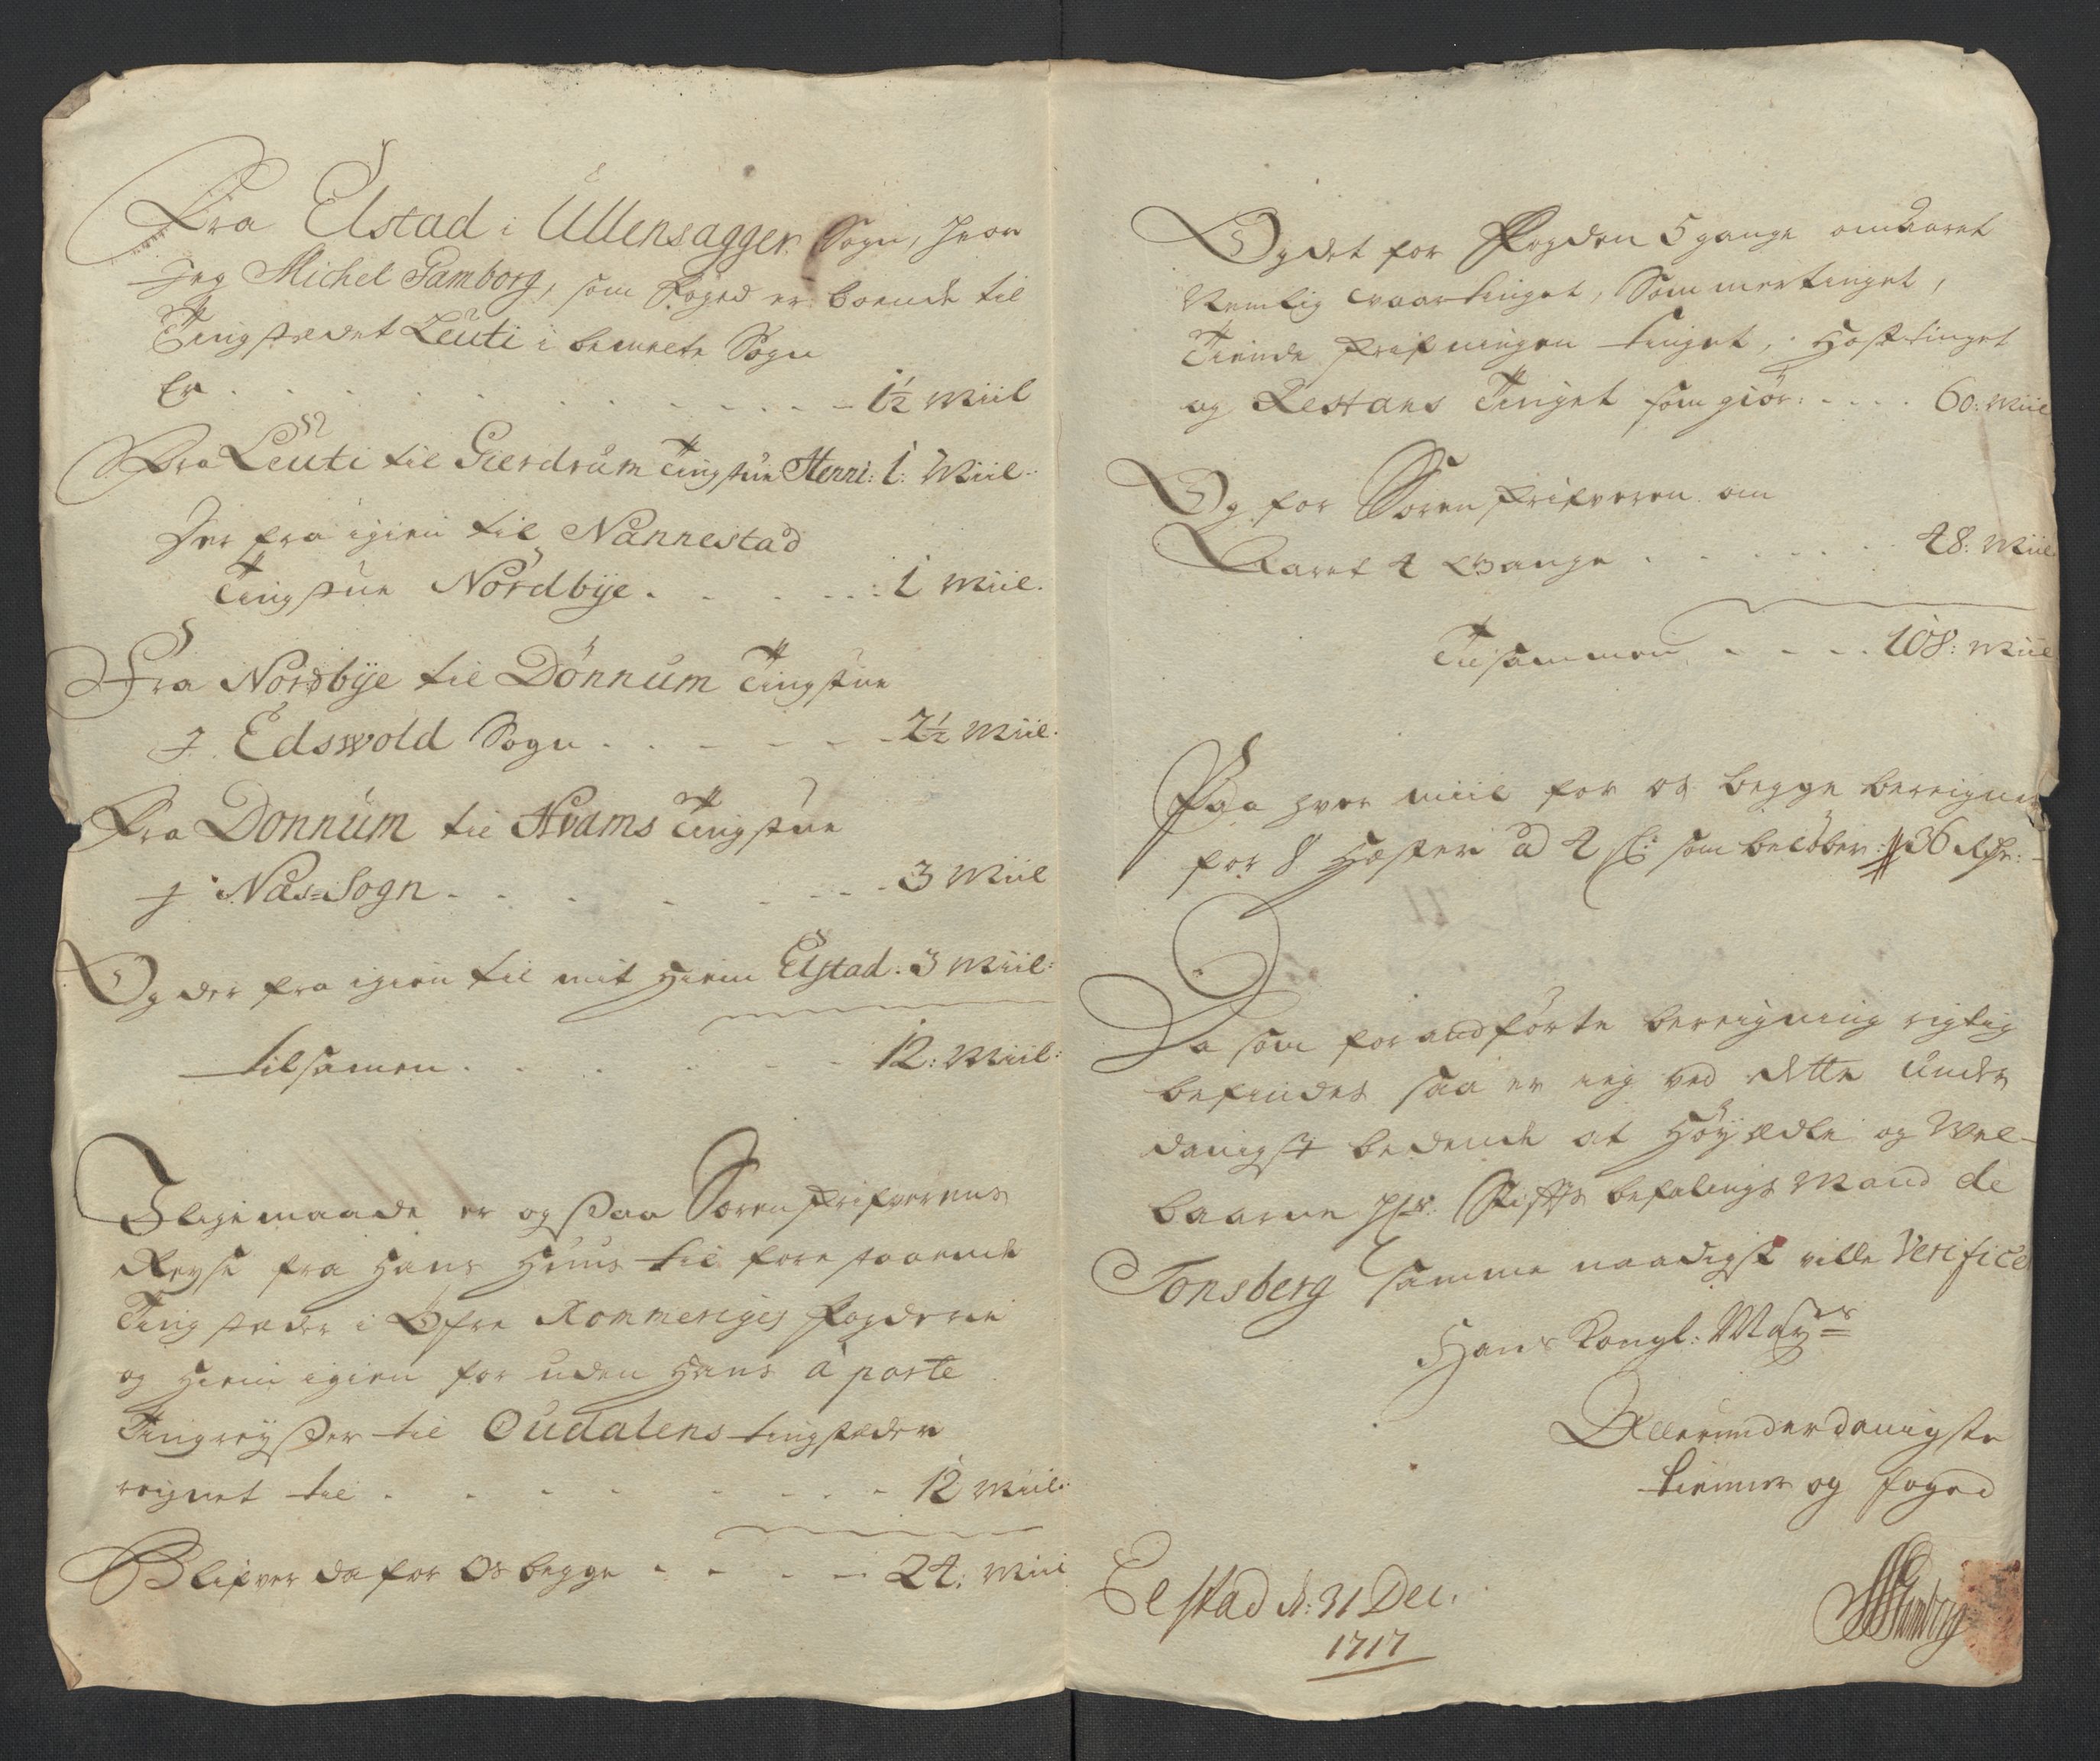 Fra Elstad i Ullensagger Sogn, hvor
Jeg Michel Gamborg, som Foged er boende til
Tingstedet Leuti i bemelte Sogn
Er . . . . . . . . . . . 1½ Miil
Fra Leuti til Gierdrum Tingstue Henni: 1: Miil:
Der fra igien til Nannestad
Tingstue Nordbye . . . . . : 1 Miil.
Fra Nordbye til Dönnum Tingstue
J Edswold Sogn . . . . . . 2½ Miil.
Fra Donnum til Hvams Tingstue
J Næs=Sogn . . . . . . . 3 Miil
Og der fra igien til mit Hiem Elstad: 3 Miil:
tilsamen . . . . . . 12: Miil:
J lige maade er og saa Sorenskrifverens
Reyse fra Hans Huus til forestaaende
Tingstæder i Øfre Rommeriges Fogderie
og Hiem igien for uden Hans à parte
Tingreyßer til Oudalens tingstæder
reignet til . . . . . . . . 12 Miil:
Blifver da for Os begge . . . . 24: Miil
Og det for Fogden 5 gange om Aaret
Nemlig Waartinget, Sommertinget,
Tiende skrifningen tinget, Høstinget
og Restans Tinget som giør: . . . . 60: Miil
Og for Sorenskrifveren om
Aaret 4 Gange . . . . . . 48: Miil
Tilsammen . . . . 108: Miil
Paa hver Miil for os begge bereignes
for 8 Hester à 4 s: som beløber: 36 Rdr:
Da som forandførte bereigning rigtig
befindes saa er ieg ved dette under
danigst bedende at Høyædle og Wel-
baarne Hr: Stiftsbefalings Mand de
Tonsberg samme naadigst ville Verificer
Hans Kongl: Mayts
Allerunderdanigste
tienner og foged
Elstad d: 31 Dec:
1717
MGamborg